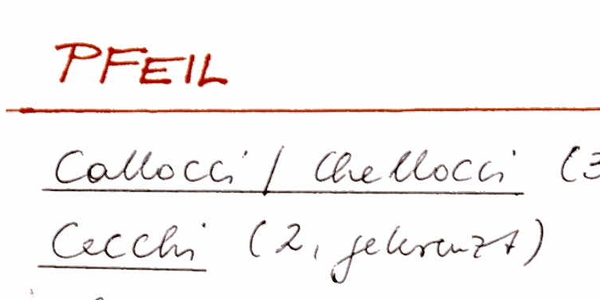 PFEIL
Callocci / Chellocci (3
Cecchi (2, gekreuzt)